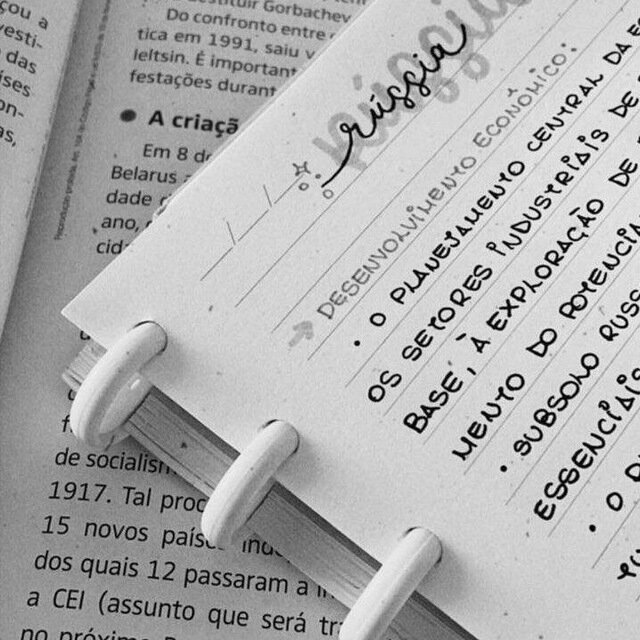 çou a
das
stituir Gorbachev
Do confronto entre
tica em 1991, saiu v
Ieltsin. É important
festações durant
A criaçã
Em 8 d
Belarus
dade
ano,
cid
de socialis
1917. Tal proc
15 novos país
dos quais 12 passaram a
a CEI (assunto que será tr
no próximo
rússia
rússia
DESENVOLVIMENTO ECONÔMICO:
• O PLANEJAMENTO CENTRAL DA E
OS SETORES INDUSTRIAIS DE
BASE, À EXPLORAÇÃO DE
MENTO DO POTENCIA
• SUBSOLO RUSS
ESSENCIAIS
• O